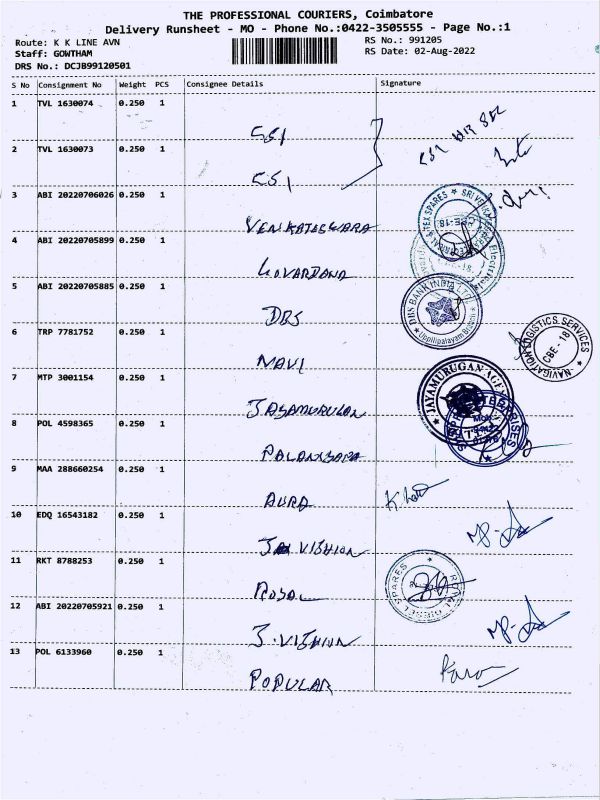 THE PROFESSIONAL COURIERS, Coimbatore
Delivery Runsheet - MO - Phone No.:0422-3505555 - Page No.:1
Route: K K LINE AVN
RS No.: 991205
Staff: GOWTHAM
RS Date: 02-Aug-2022
DRS No.: DCJB99120501
S No Consignment No Weight PCS Consignee Details Signature
1 TVL 1630074 0.250 1
2 TVL 1630073 0.250 1
CSI
3 ABI 20220706026 0.250 1
VENKATESWARA
SRI VENKATESWARA ELECTRICAL & TEX SPARES
CBE-18
4 ABI 20220705899 0.250 1
GOVARDANA
Electricals
5 ABI 20220705885 0.250 1
DBS
DBS BANK INDIA LTD
Uppilipalayam Branch
6 TRP 7781752 0.250 1
NAVI
NAVIGATION LOGISTICS SERVICES
CBE - 18
7 MTP 3001154 0.250 1
JAYAMURUGAN
JAYAMURUGAN AGE
8 POL 4598365 0.250 1
ERPRISES
9 MAA 288660254 0.250 1
AURA
10 EDQ 16543182 0.250 1
JAI VISHION
11 RKT 8788253 0.250 1
ROYAL
ROYAL DIESEL SPARES
12 ABI 20220705921 0.250 1
J. VISHION
13 POL 6133960 0.250 1
POPULAR